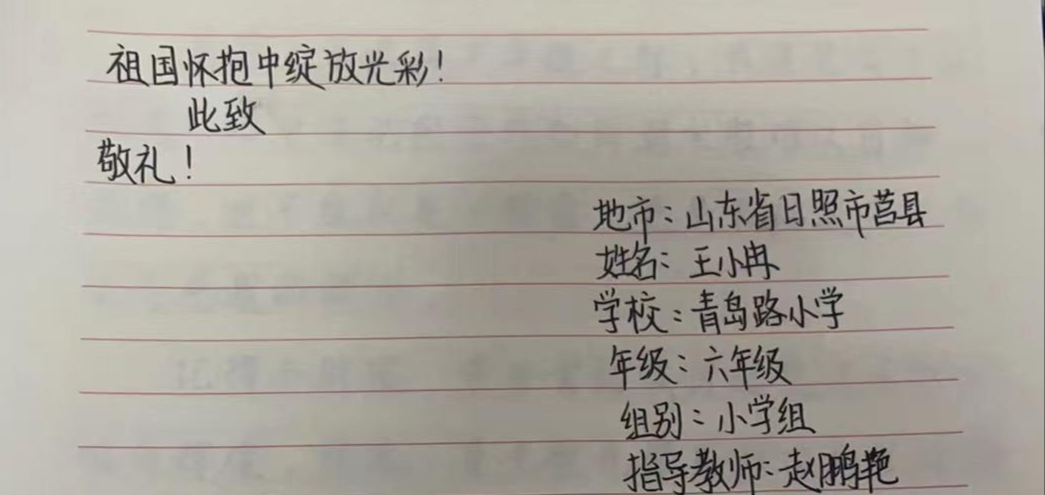 祖国怀抱中绽放光彩！
此致
敬礼！
地市：山东省日照市莒县
姓名：王小冉
学校：青岛路小学
年级：六年级
组别：小学组
指导教师：赵鹏艳